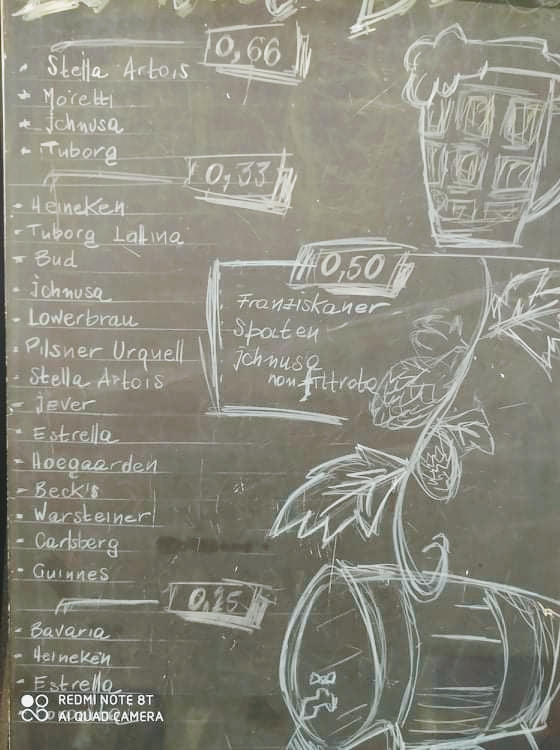 0,66
Stella Artois
Moretti
jchnusa
Tuborg
0,33
Heineken
Tuborg Lattina
Bud
jchnusa
Lowerbrau
Pilsner Urquell
Stella Artois
jever
Estrella
Hoegaarden
Beck's
Warsteiner
Carlsberg
Guinnes
0,50
Franziskaner
Spaten
Jchnusa
non filtrata
0,25
Bavaria
Heineken
Estrella
REDMI NOTE 8T
AI QUAD CAMERA